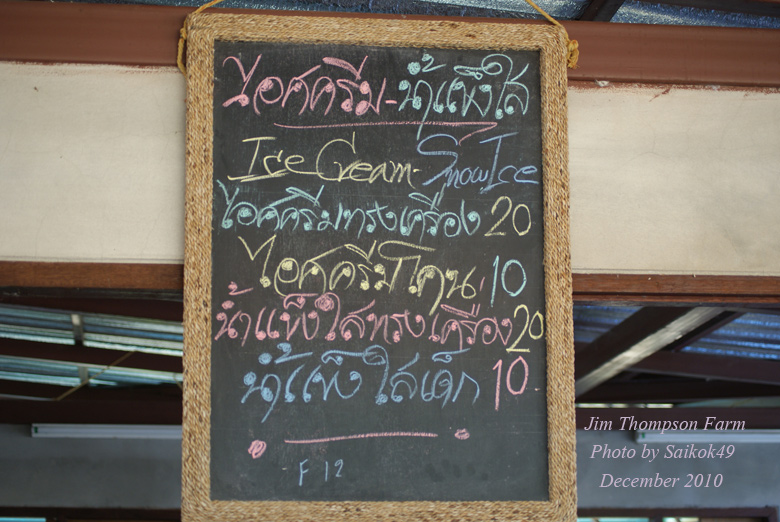 ไอศครีม-น้ำแข็งใส
Ice Cream-Snow Ice
ไอศครีมทรงเครื่อง 20
ไอศครีมโคน 10
น้ำแข็งใสทรงเครื่อง 20
น้ำแข็งใสเด็ก 10.
F 12
Jim Thompson Farm
Photo by Saikok49
December 2010